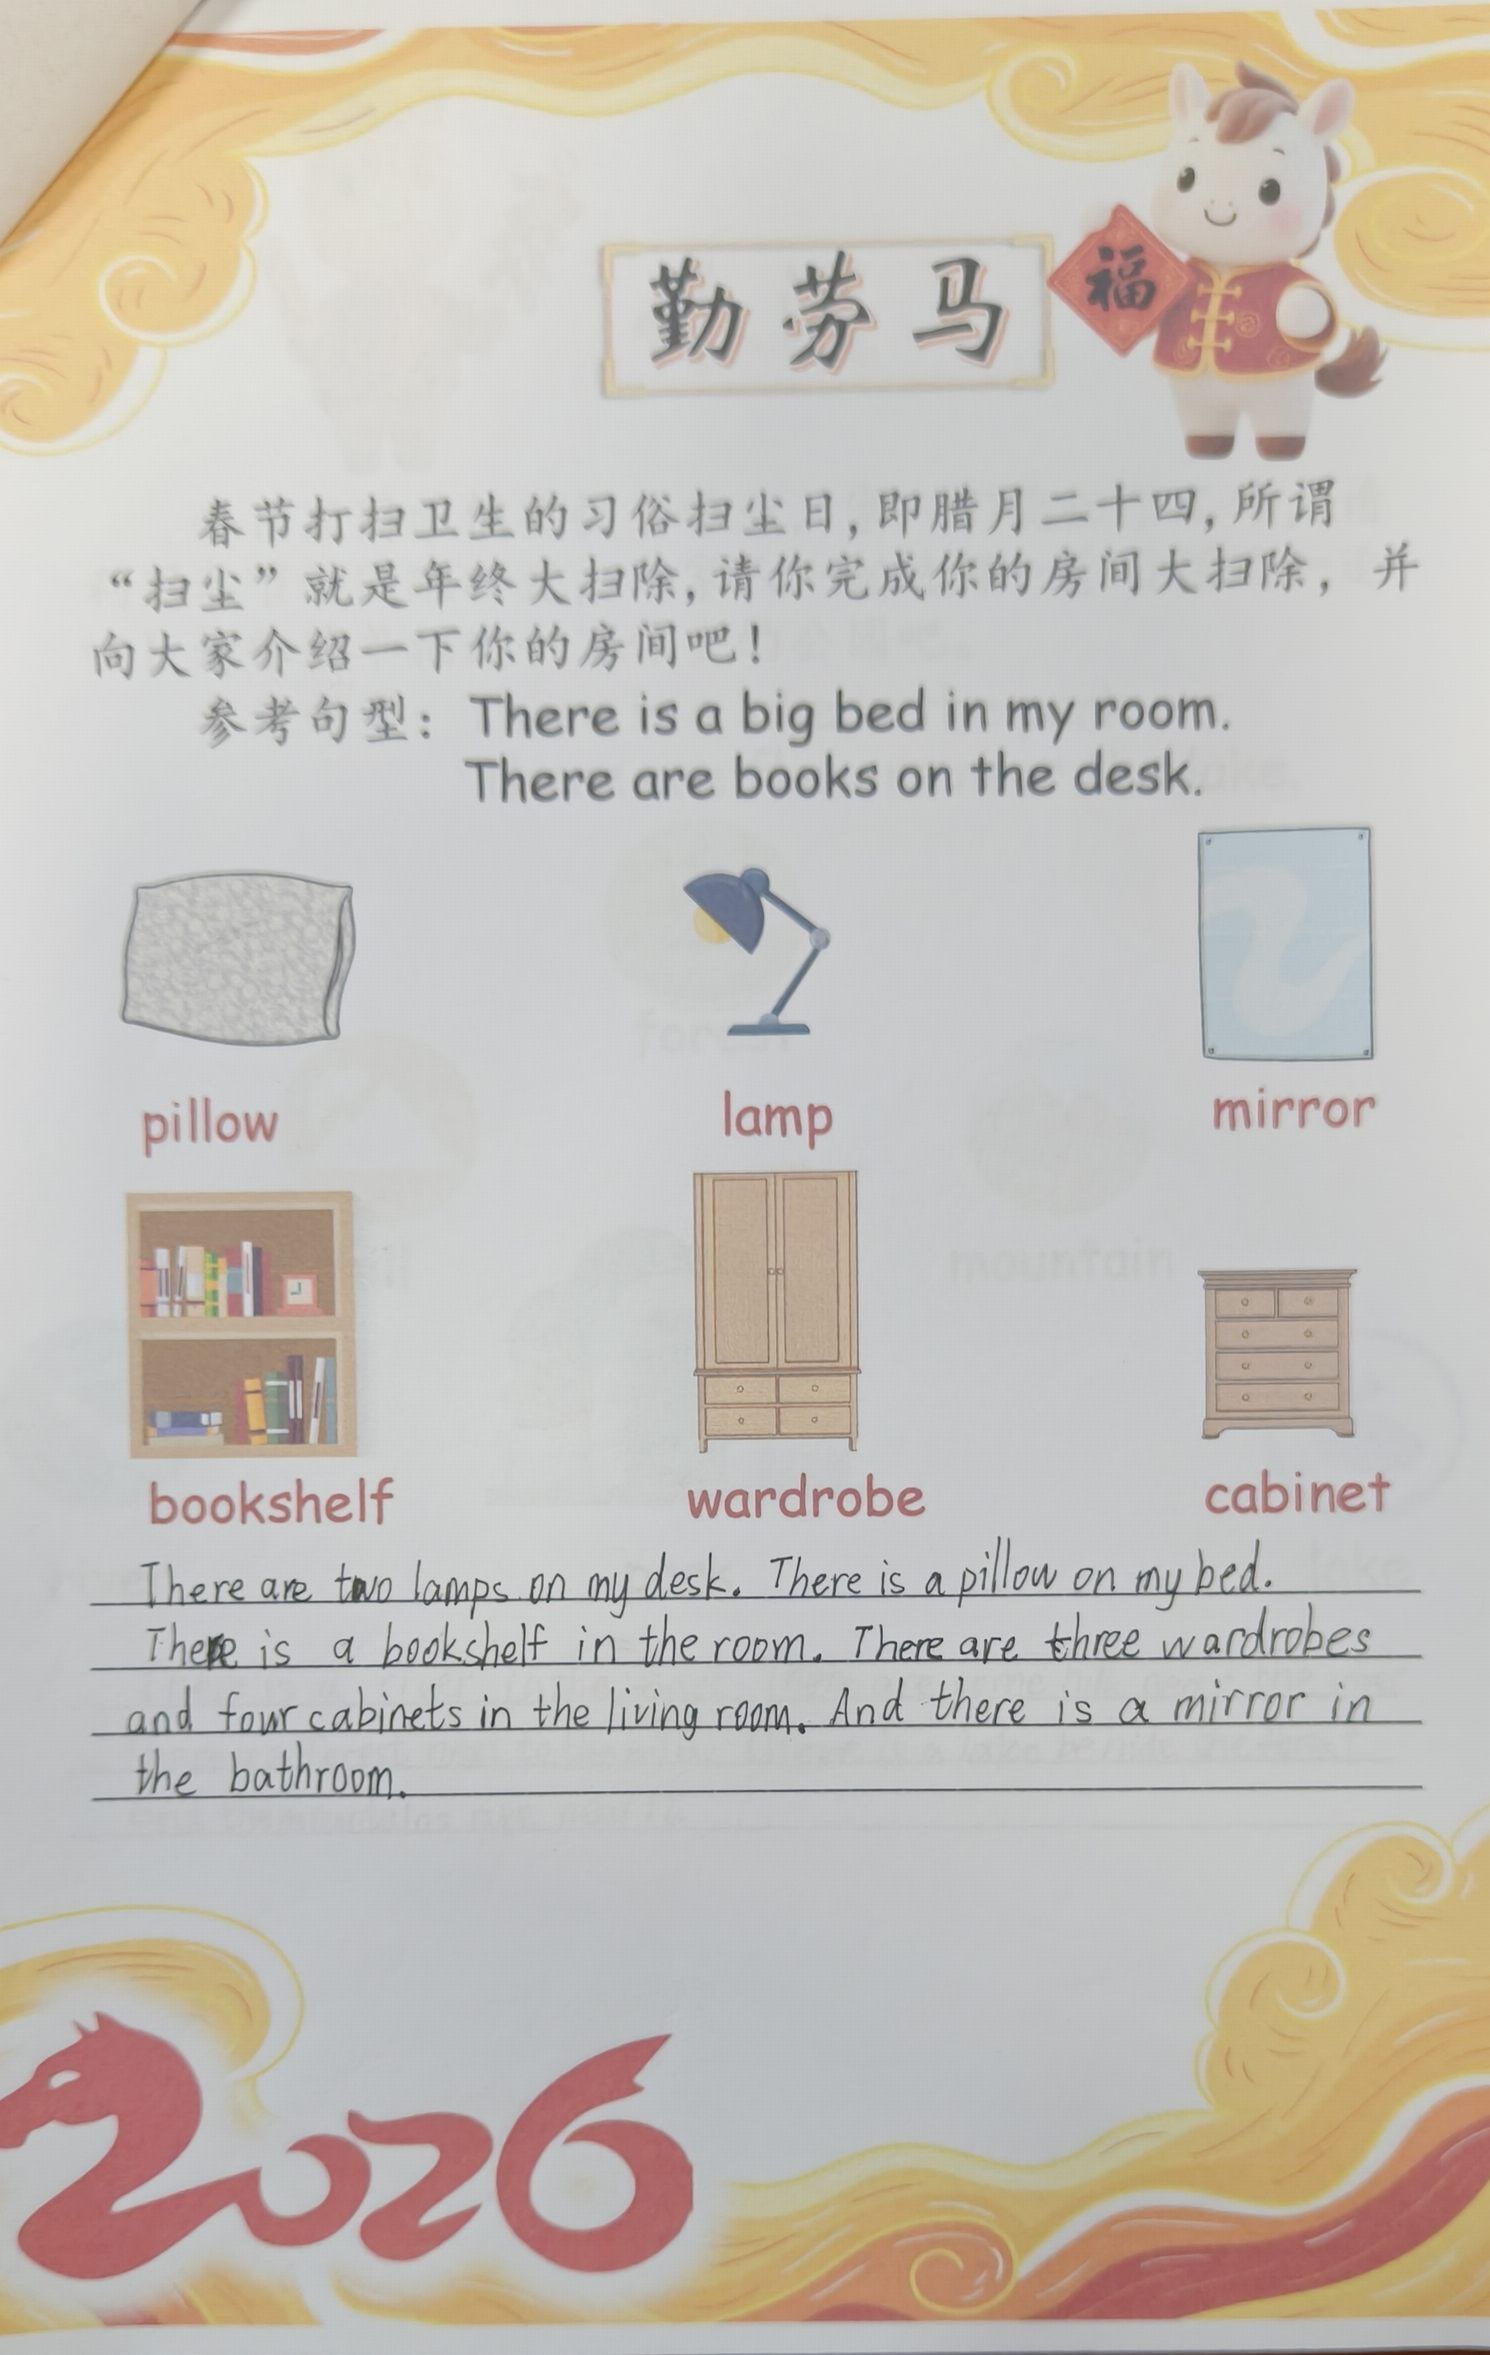 勤劳马
福
春节打扫卫生的习俗扫尘日,即腊月二十四,所谓
“扫尘”就是年终大扫除,请你完成你的房间大扫除，并
向大家介绍一下你的房间吧！
参考句型：There is a big bed in my room.
There are books on the desk.
pillow lamp mirror
bookshelf wardrobe cabinet
There are two lamps on my desk. There is a pillow on my bed.
There is a bookshelf in the room. There are three wardrobes
and four cabinets in the living room. And there is a mirror in
the bathroom.
2026